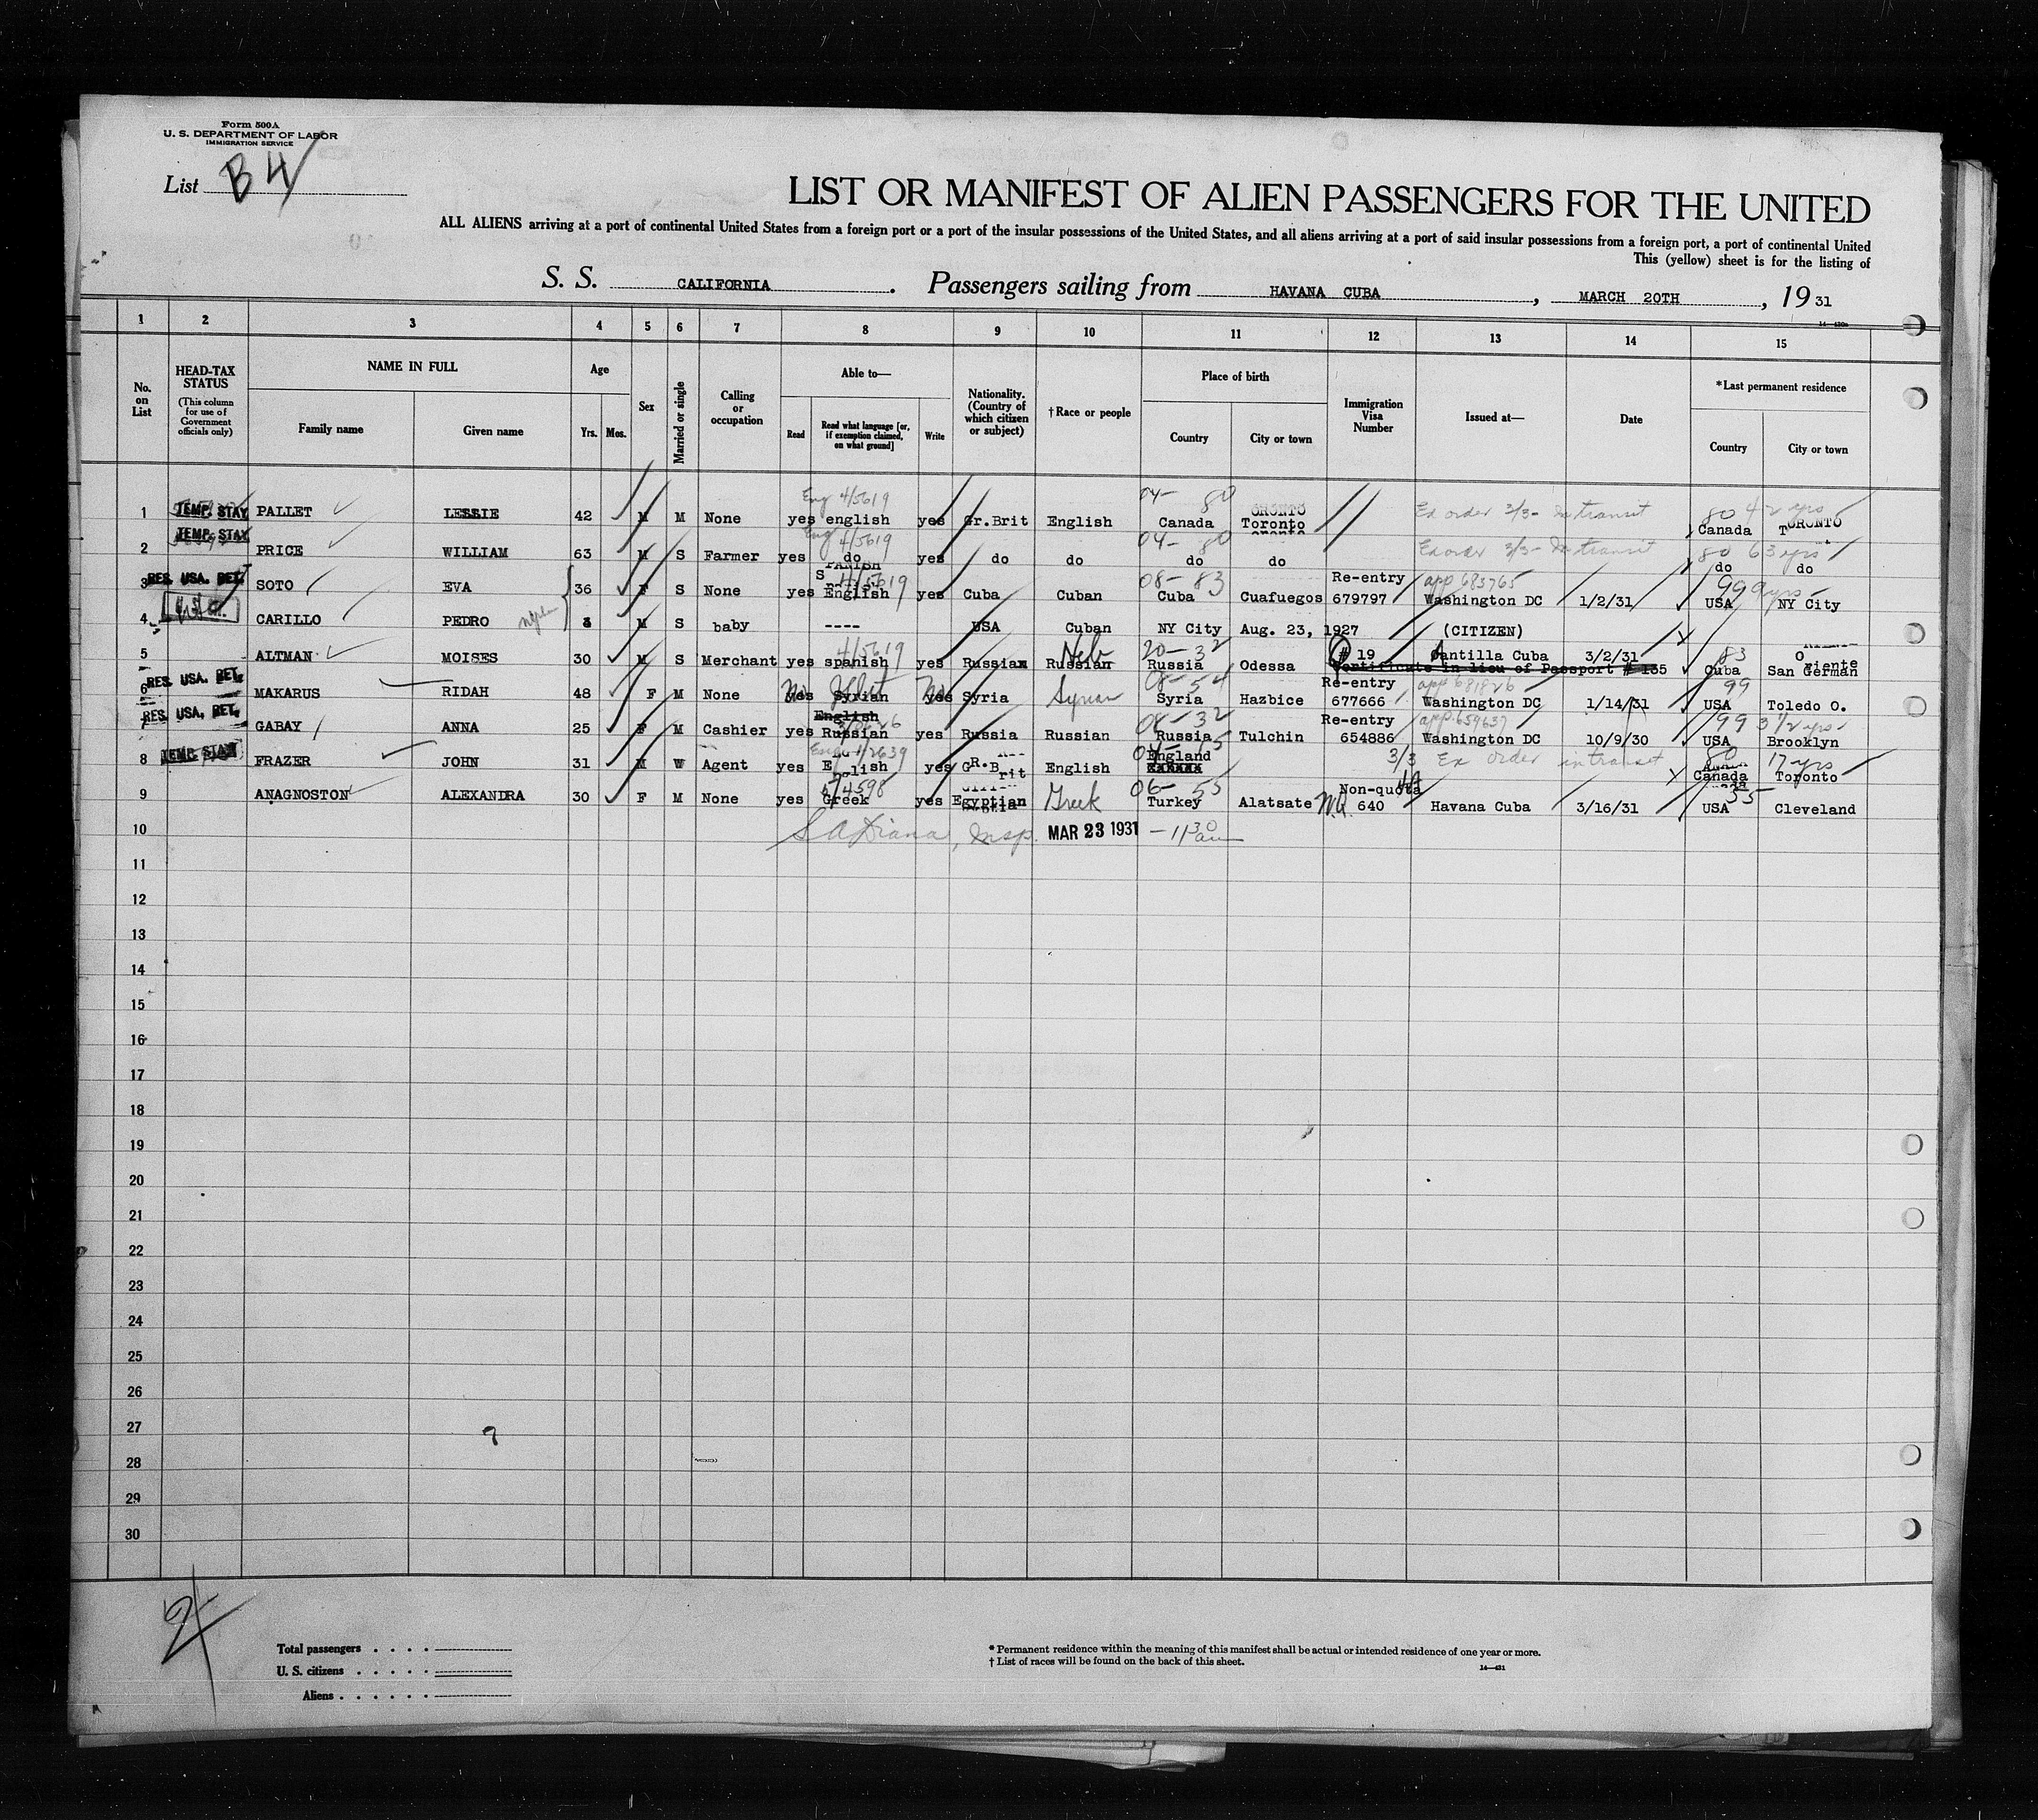 Form 500A
U. S. DEPARTMENT OF LABOR
IMMIGRATION SERVICE
List B 4
LIST OR MANIFEST OF ALIEN PASSENGERS FOR THE UNITED
ALL ALIENS arriving at a port of continental United States from a foreign port or a port of the insular possessions of the United States, and all aliens arriving at a port of said insular possessions from a foreign port, a port of continental United
This (yellow) sheet is for the listing of
S. S. CALIFORNIA . Passengers sailing from HAVANA CUBA , MARCH 20TH , 19 31
1 2 3 4 5 6 7 8 9 10 11 12 13 14 15
No. on List
HEAD-TAX STATUS (This column for use of Government officials only)
NAME IN FULL
Family name Given name
Age
Yrs. Mos.
Sex
Married or single
Calling or occupation
Able to—
Read Read what language [or, if exemption claimed, on what ground] Write
Nationality. (Country of which citizen or subject)
† Race or people
Place of birth
Country City or town
Immigration Visa Number
Issued at—
Date
*Last permanent residence
Country City or town
Eng 4/5619 04- 80
1 TEMP. STAY PALLET LESSIE 42 M M None yes english yes Gr.Brit English Canada Toronto Ex order 3/3- In transit 80 42 yrs Canada TORONTO
Eng 4/5619 04- 80
2 TEMP. STAY PRICE WILLIAM 63 M S Farmer yes do yes do do do do Ex order 3/3- In transit 80 63 yrs do do
4/5619 08-83 Re-entry app 683765 99 9 yrs
3 RES. USA. RET. SOTO EVA 36 F S None yes English yes Cuba Cuban Cuba Cuafuegos 679797 Washington DC 1/2/31 USA NY City
4 CARILLO PEDRO M S baby ---- USA Cuban NY City Aug. 23, 1927 (CITIZEN)
4/5619 Heb 20-32 83
5 ALTMAN MOISES 30 M S Merchant yes spanish yes Russian Russian Russia Odessa # 19 Antilla Cuba 3/2/31 Cuba San German
Certificate in lieu of Passport # 135
No No 08-54 Re-entry app 681826 99
6 RES. USA. RET. MAKARUS RIDAH 48 F M None yes Syrian yes Syria Syrian Syria Hazbice 677666 Washington DC 1/14/31 USA Toledo O.
English 08-32 Re-entry app. 659637 99 3 1/2 yrs
7 RES. USA. RET. GABAY ANNA 25 F M Cashier yes Russian yes Russia Russian Russia Tulchin 654886 Washington DC 10/9/30 USA Brooklyn
Eng 1/2639 04-15 England 3/3 Ex order in transit 80 17 yrs
8 TEMP. STAY FRAZER JOHN 31 M W Agent yes English yes GR.Brit English Canada Toronto
4598 06-55 Non-quota 55
9 ANAGNOSTON ALEXANDRA 30 F M None yes Greek yes Egyptian Greek Turkey Alatsate N.Q. 640 Havana Cuba 3/16/31 USA Cleveland
10 S A Diana, Insp. MAR 23 1931 — 11 30 am
11
12
13
14
15
16
17
18
19
20
21
22
23
24
25
26
27
28
29
30
Total passengers
U. S. citizens
Aliens
* Permanent residence within the meaning of this manifest shall be actual or intended residence of one year or more.
† List of races will be found on the back of this sheet.
14—431